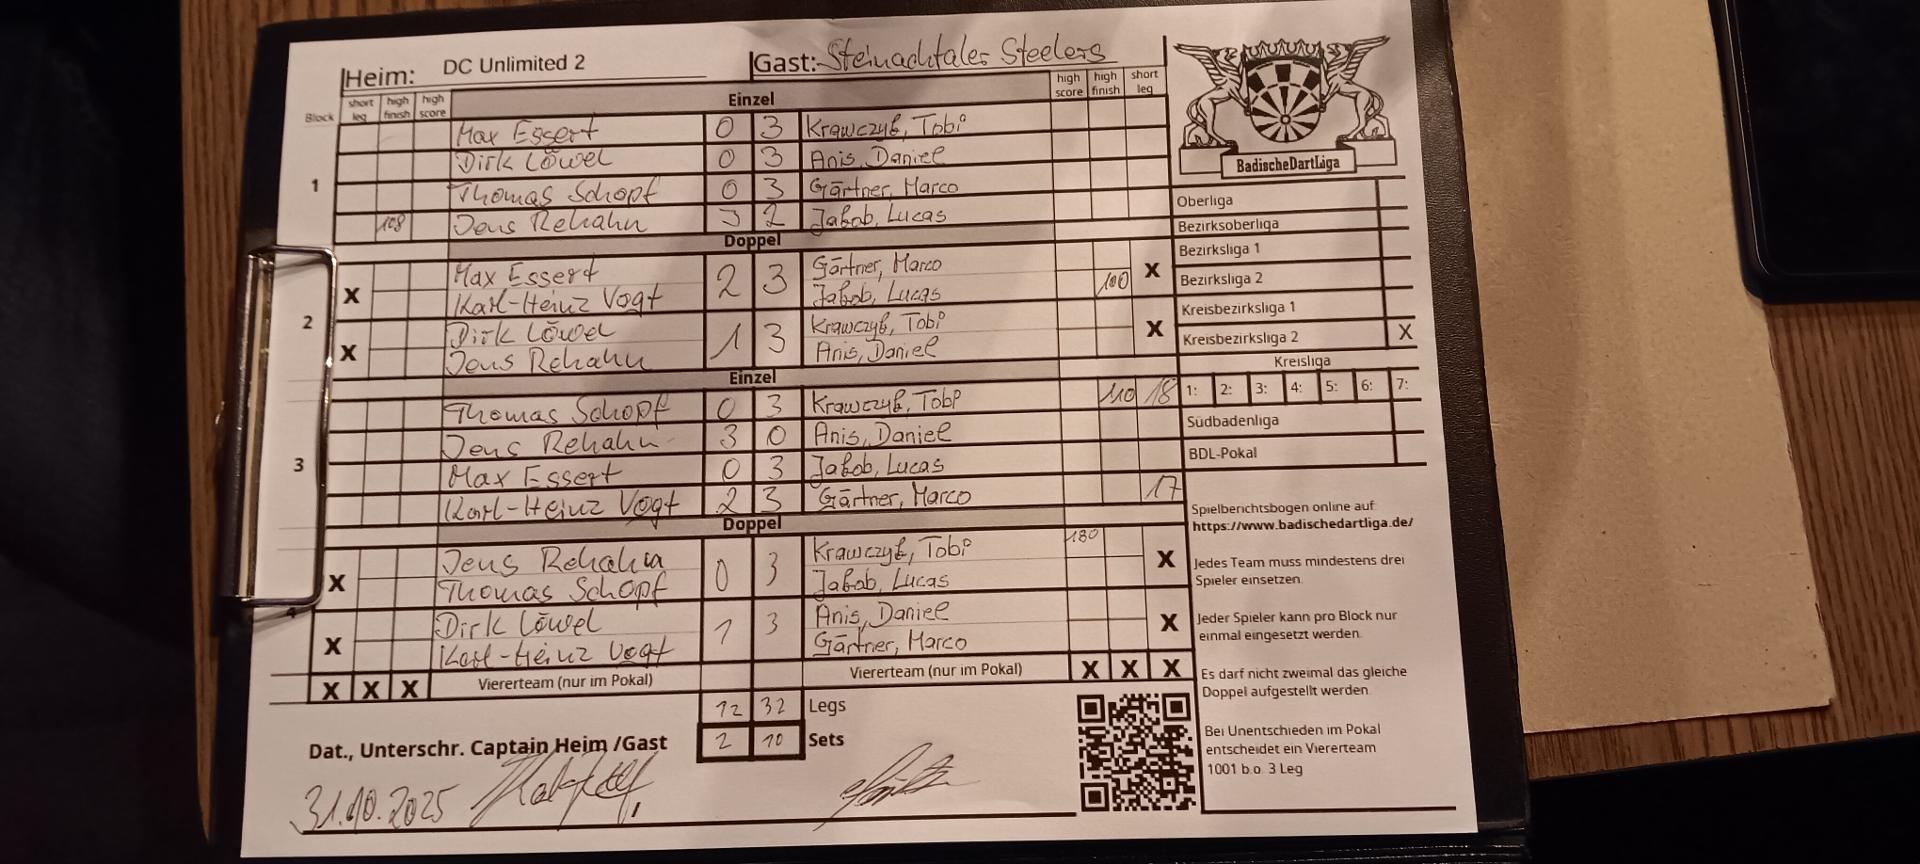 Heim: DC Unlimited 2 Gast: Steinachtaler Steelers
Block short leg high finish high score Einzel high score high finish short leg
1
Max Essert 0 3 Krawczyk, Tobi
Dirk Löwel 0 3 Anis, Daniel
Thomas Schopf 0 3 Gärtner, Marco
108 Jens Rehahn 3 2 Jakob, Lucas
Doppel
2
X Max Essert 2 3 Gärtner, Marco X
Karl-Heinz Vogt Jakob, Lucas 100
X Dirk Löwel 1 3 Krawczyk, Tobi X
Jens Rehahn Anis, Daniel
Einzel
3
Thomas Schopf 0 3 Krawczyk, Tobi 110 18
Jens Rehahn 3 0 Anis, Daniel
Max Essert 0 3 Jakob, Lucas
Karl-Heinz Vogt 2 3 Gärtner, Marco 17
Doppel
4
X Jens Rehahn 0 3 Krawczyk, Tobi 180 X
Thomas Schopf Jakob, Lucas
X Dirk Löwel 1 3 Anis, Daniel X
Karl-Heinz Vogt Gärtner, Marco
X X X Viererteam (nur im Pokal) Viererteam (nur im Pokal) X X X
12 32 Legs
2 10 Sets
Dat., Unterschr. Captain Heim /Gast
31.10.2025
BadischeDartLiga
Oberliga
Bezirksoberliga
Bezirksliga 1
Bezirksliga 2
Kreisbezirksliga 1
Kreisbezirksliga 2 X
Kreisliga
1: 2: 3: 4: 5: 6: 7:
Südbadenliga
BDL-Pokal
Spielberichtsbogen online auf:
https://www.badischedartliga.de/
Jedes Team muss mindestens drei
Spieler einsetzen.
Jeder Spieler kann pro Block nur
einmal eingesetzt werden.
Es darf nicht zweimal das gleiche
Doppel aufgestellt werden.
Bei Unentschieden im Pokal
entscheidet ein Viererteam
1001 b.o. 3 Leg